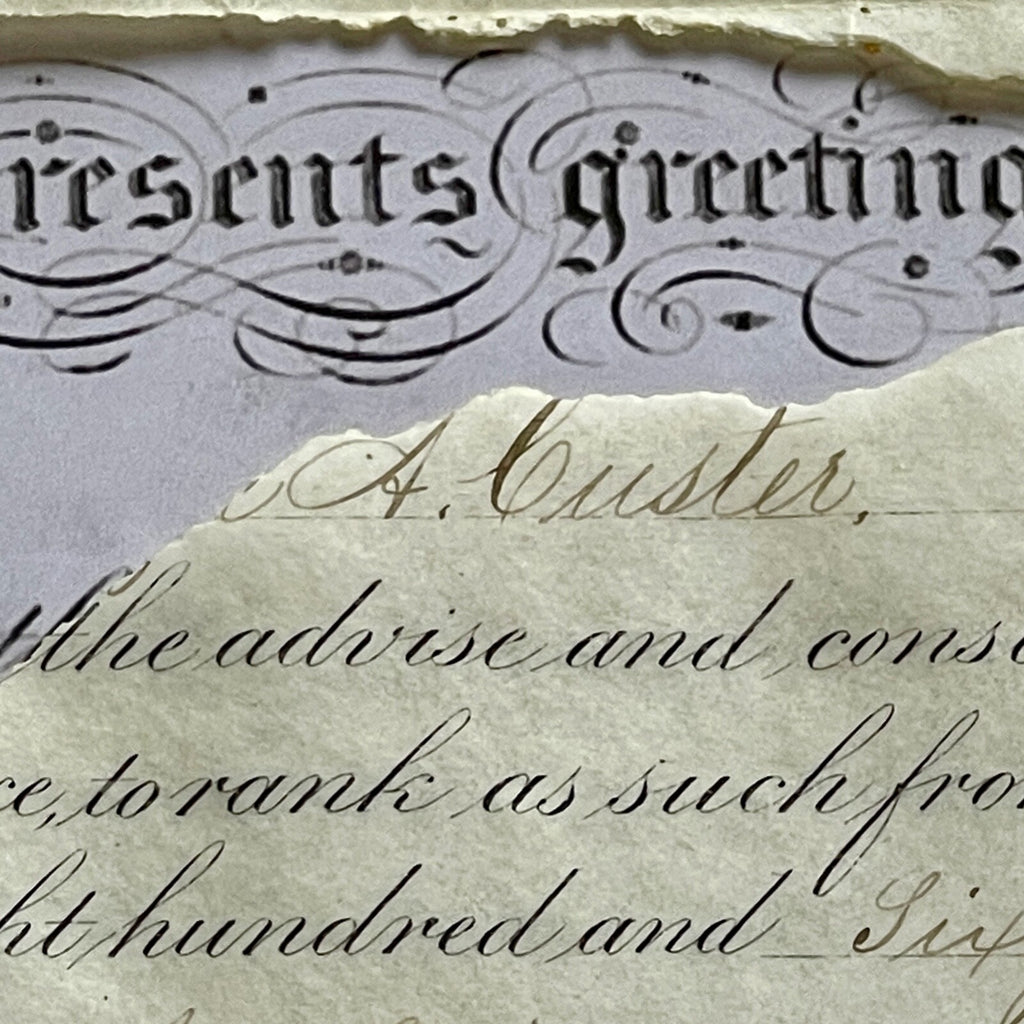 resents greeting
A. Custer,
the advise and cons
ce, to rank as such fro
ht hundred and Six